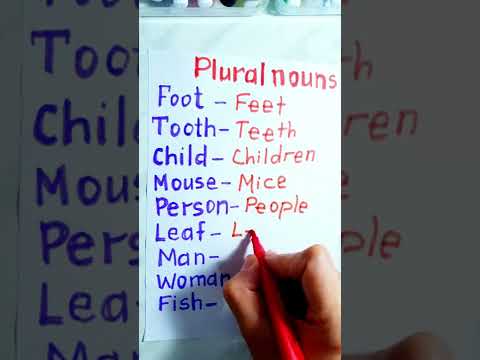 Plural nouns
Foot - Feet
Tooth - Teeth
Child - Children
Mouse - Mice
Person - People
Leaf - L
Man -
Woman
Fish -